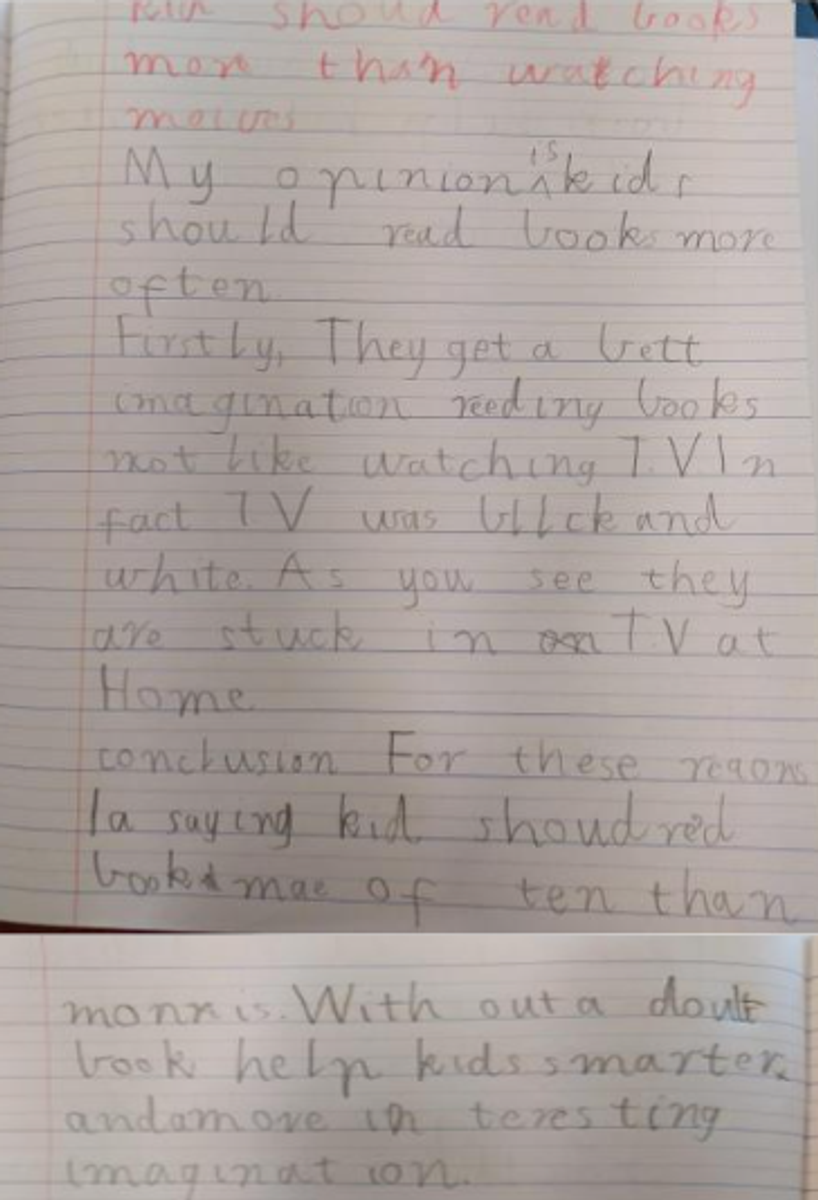 kid shoud read books
more than watching
moives
My opinion is kids
should read books more
often
Firstly, They get a bett
imagination reeding books
not like watching T.V In
fact TV was bllck and
white. As you see they
are stuck in on T.V at
Home
conclusion For these reaons
Ia saying kid shoud red
books mae of ten than
With out a doult
book help kids smarter.
andamore in teresting
imaginat ion.